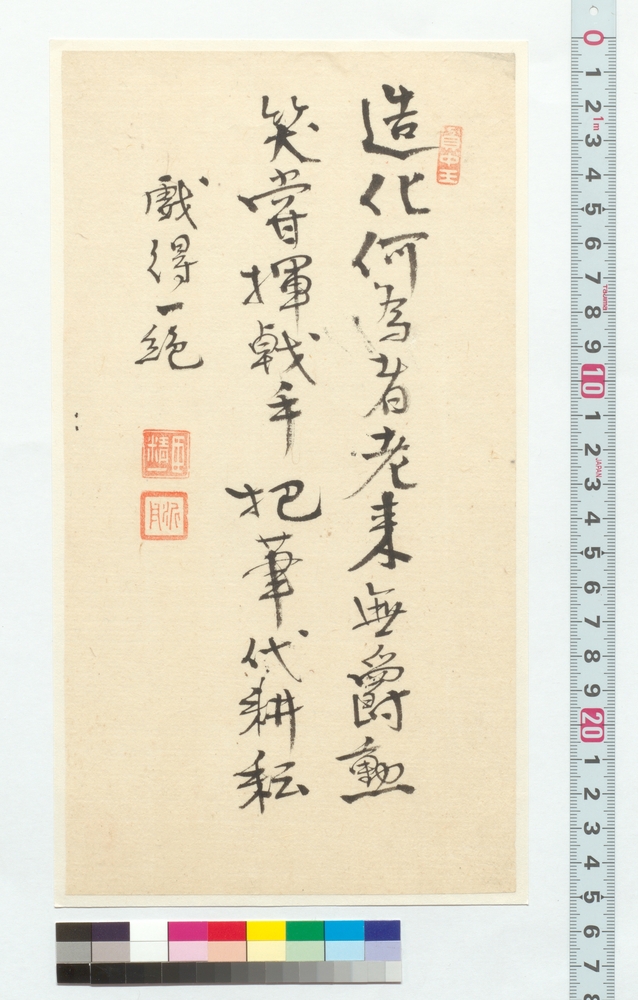 造化何為者老来無爵勲
笑嘗揮戟手把筆代耕耘
戯得一絶
貧中王
0 1 2 3 4 5 6 7 8 9 10 1 2 3 4 5 6 7 8 9 20 1 2 3 4 5 6 7 8
1m
JAPAN